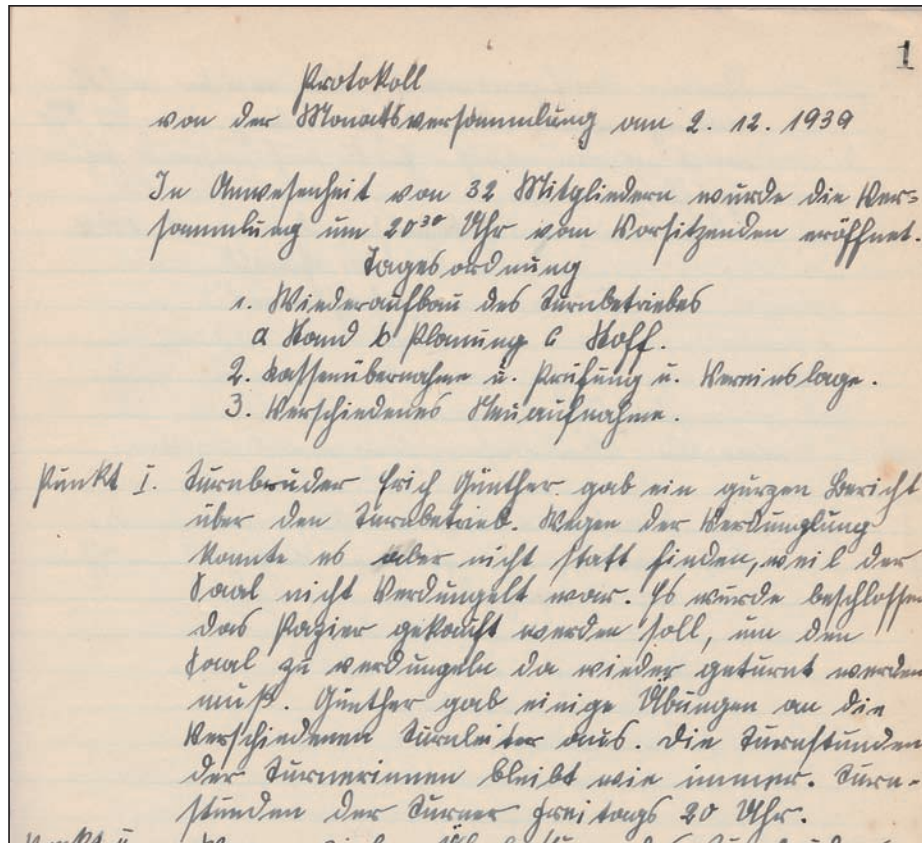 1
Protokoll
von der Monatsversammlung am 2. 12. 1939
In Anwesenheit von 32 Mitgliedern wurde die Ver=
sammlung um 20³⁰ Uhr vom Vorsitzenden eröffnet.
Tagesordnung
1. Wiederaufbau des Turnbetriebes
a Stand b Planung c Stoff.
2. Kassenübernahme u. Prüfung u. Vereinslage.
3. Verschiedenes Neuaufnahme.
Punkt I. Turnbruder Erich Günther gab ein gurzen Bericht
über den Turnbetrieb. Wegen der Verdunglung
konnte es aber nicht statt finden, weil der
Saal nicht Verdungelt war. Es wurde beschlossen
das Papier gekauft werden soll, um den
Saal zu verdungeln da wieder geturnt werden
muß. Günther gab einige Übungen an die
Verschiedenen Turnleiter aus. Die Turnstunden
der Turnerinnen bleibt wie immer. Turn-
stunden der Turner Freitags 20 Uhr.
Punkt II